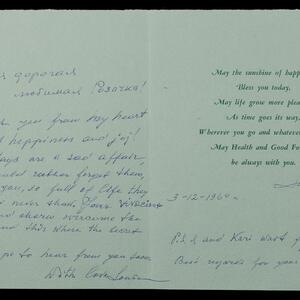 дорогая
любимая Розочка!
you from my heart
happiness and joy!
days are a sad affair,
would rather forget them,
you, so full of life they
never shade your vivacious
and this where the secret
to hear from you soon
With love
May the sunshine of happ
Bless you today,
May life grow more plea
As time goes its way,
Wherever you go and whateve
May Health and Good Fo
be always with you.
3-12-1960
and Keri want y
Best regards for your